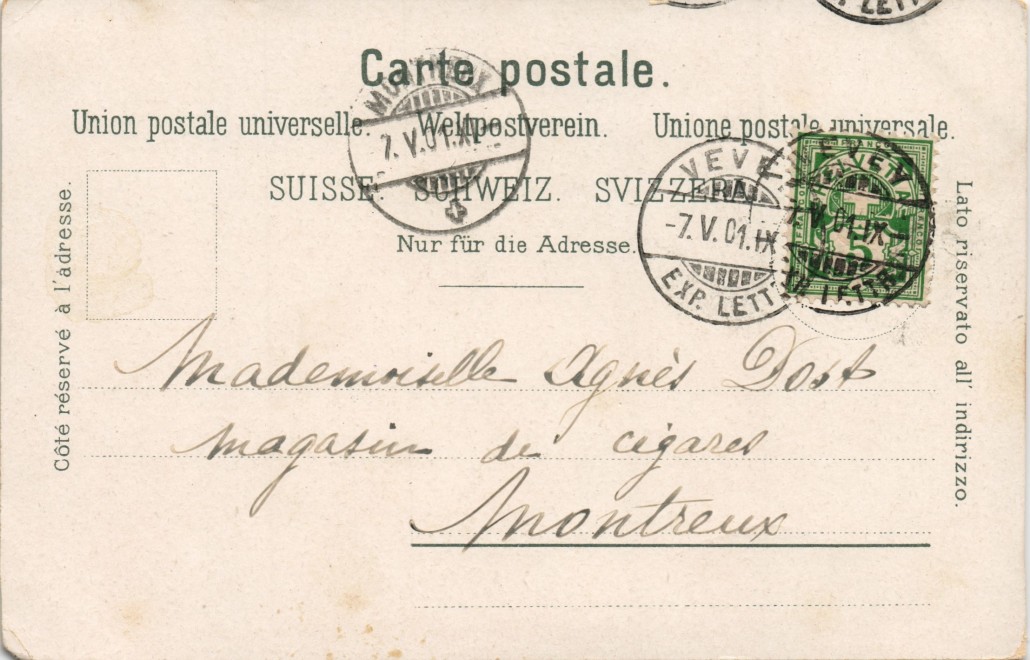 Carte postale.
Union postale universelle. Weltpostverein. Unione postale universale.
SUISSE. SCHWEIZ. SVIZZERA.
Nur für die Adresse.
Côté réservé à l'adresse.
Lato riservato all' indirizzo.
MONTREUX
7.V.01.XI
VEVEY
-7.V.01.IX
EXP. LETTR.
VEVEY
7.V.01.IX
EXP. LETTR.
5
P. LETT
Mademoiselle Agnès Dost
Magasin de cigares
Montreux